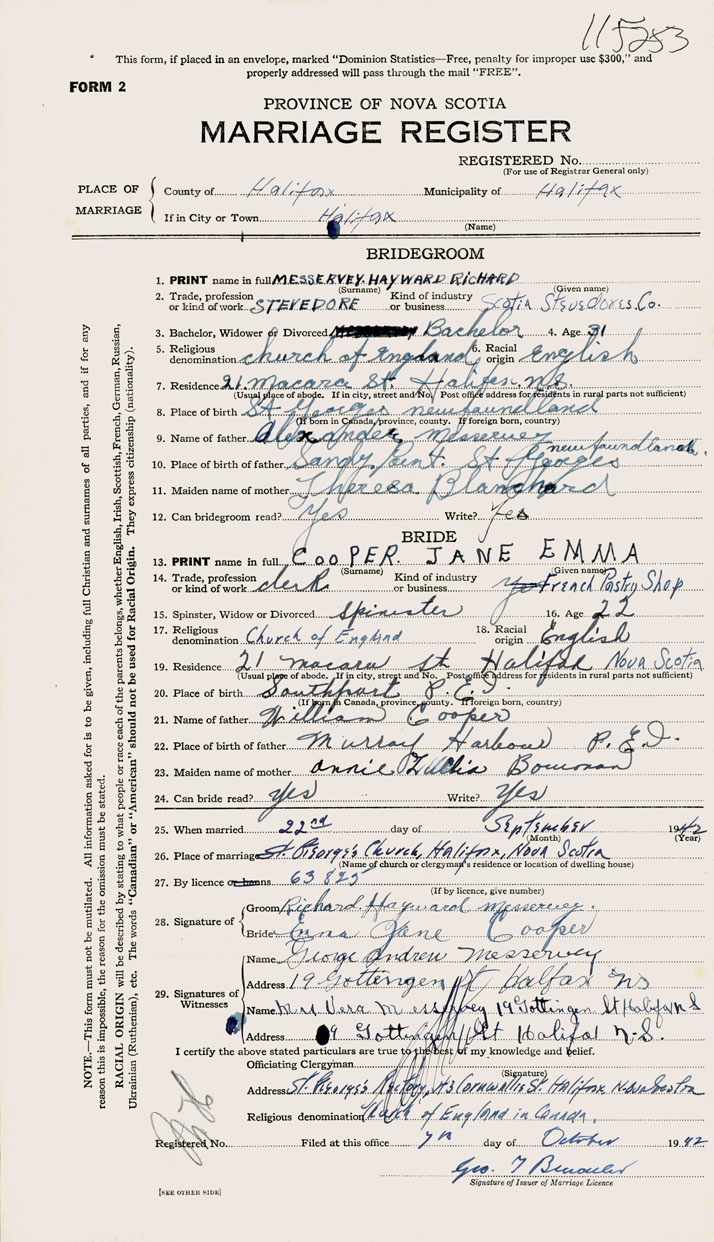 115283
This form, if placed in an envelope, marked "Dominion Statistics—Free, penalty for improper use $300," and
properly addressed will pass through the mail "FREE".
FORM 2
PROVINCE OF NOVA SCOTIA
MARRIAGE REGISTER
REGISTERED No.
(For use of Registrar General only)
PLACE OF MARRIAGE
County of Halifax Municipality of Halifax
If in City or Town Halifax
(Name)
BRIDEGROOM
1. PRINT name in full MESSERVEY. HAYWARD RICHARD
(Surname) (Given name)
2. Trade, profession or kind of work STEVEDORE Kind of industry or business Scotia Stevedores. Co.
3. Bachelor, Widower or Divorced Bachelor 4. Age 31
5. Religious denomination church of England 6. Racial origin English
7. Residence 21 Macara St. Halifax N.S.
(Usual place of abode. If in city, street and No. Post office address for residents in rural parts not sufficient)
8. Place of birth St Georges newfoundland
(If born in Canada, province, county. If foreign born, country)
9. Name of father Alexander Messervey
10. Place of father Sandy Point. St Georges newfoundland.
11. Maiden name of mother Theresa Blanchard
12. Can bridegroom read? Yes Write? Yes
BRIDE
13. PRINT name in full COOPER. JANE EMMA
(Surname) (Given name)
14. Trade, profession or kind of work clerk Kind of industry or business French Pastry Shop
15. Spinster, Widow or Divorced Spinister 16. Age 22
17. Religious denomination Church of England 18. Racial origin English
19. Residence 21 macara st Halifax Nova Scotia
(Usual place of abode. If in city, street and No. Post office address for residents in rural parts not sufficient)
20. Place of birth Southport P.E.I.
(If born in Canada, province, county. If foreign born, country)
21. Name of father William Cooper
22. Place of birth of father Murray Harbour P.E.I.
23. Maiden name of mother Annie Bowman
24. Can bride read? yes Write? Yes
25. When married 22nd day of September 1942
(Month) (Year)
26. Place of marriage St. George's Church, Halifax, Nova Scotia
(Name of church or clergyman's residence or location of dwelling house)
27. By licence or banns 63825
(If by licence, give number)
28. Signature of
Groom Richard Hayward Messervey.
Bride Emma Jane Cooper
29. Signatures of Witnesses
Name George Andrew Messervey
Address 19 Gottingen St Halifax NS
Name Mrs Vera Messervey 19 Gottingen St Halifax NS
Address 19 Gottingen St Halifax N.S.
I certify the above stated particulars are true to the best of my knowledge and belief.
Officiating Clergyman
(Signature)
Address St. George's Rectory, 43 Cornwallis St. Halifax Nova Scotia
Religious denomination Church of England in Canada.
Registered No. Filed at this office 7th day of October 1942
Geo. T
Signature of Issuer of Marriage Licence
[SEE OTHER SIDE]
NOTE.—This form must not be mutilated. All information asked for is to be given, including full Christian and surnames of all parties, and if for any
reason this is impossible, the reason for the omission must be stated.
RACIAL ORIGIN will be described by stating to what people or race each of the parents belongs, whether English, Irish, Scottish, French, German, Russian,
Ukrainian (Ruthenian), etc. The words "Canadian" or "American" should not be used for Racial Origin. They express citizenship (nationality).